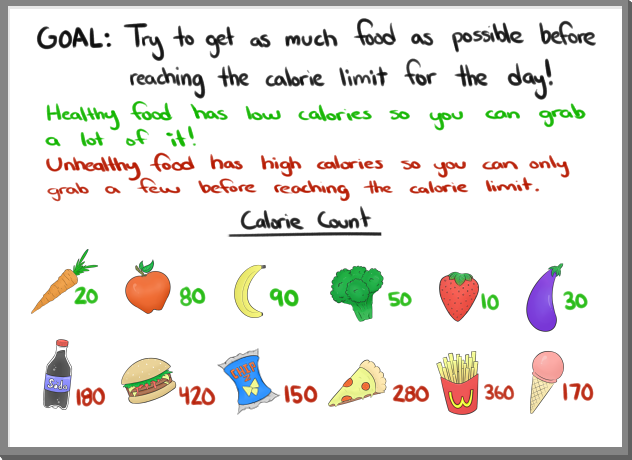 GOAL: Try to get as much food as possible before
reaching the calorie limit for the day!
Healthy food has low calories so you can grab
a lot of it!
Unhealthy food has high calories so you can only
grab a few before reaching the calorie limit.
Calorie Count
20 80 90 50 10 30
Soda 180 420 CHIPS 150 280 360 170